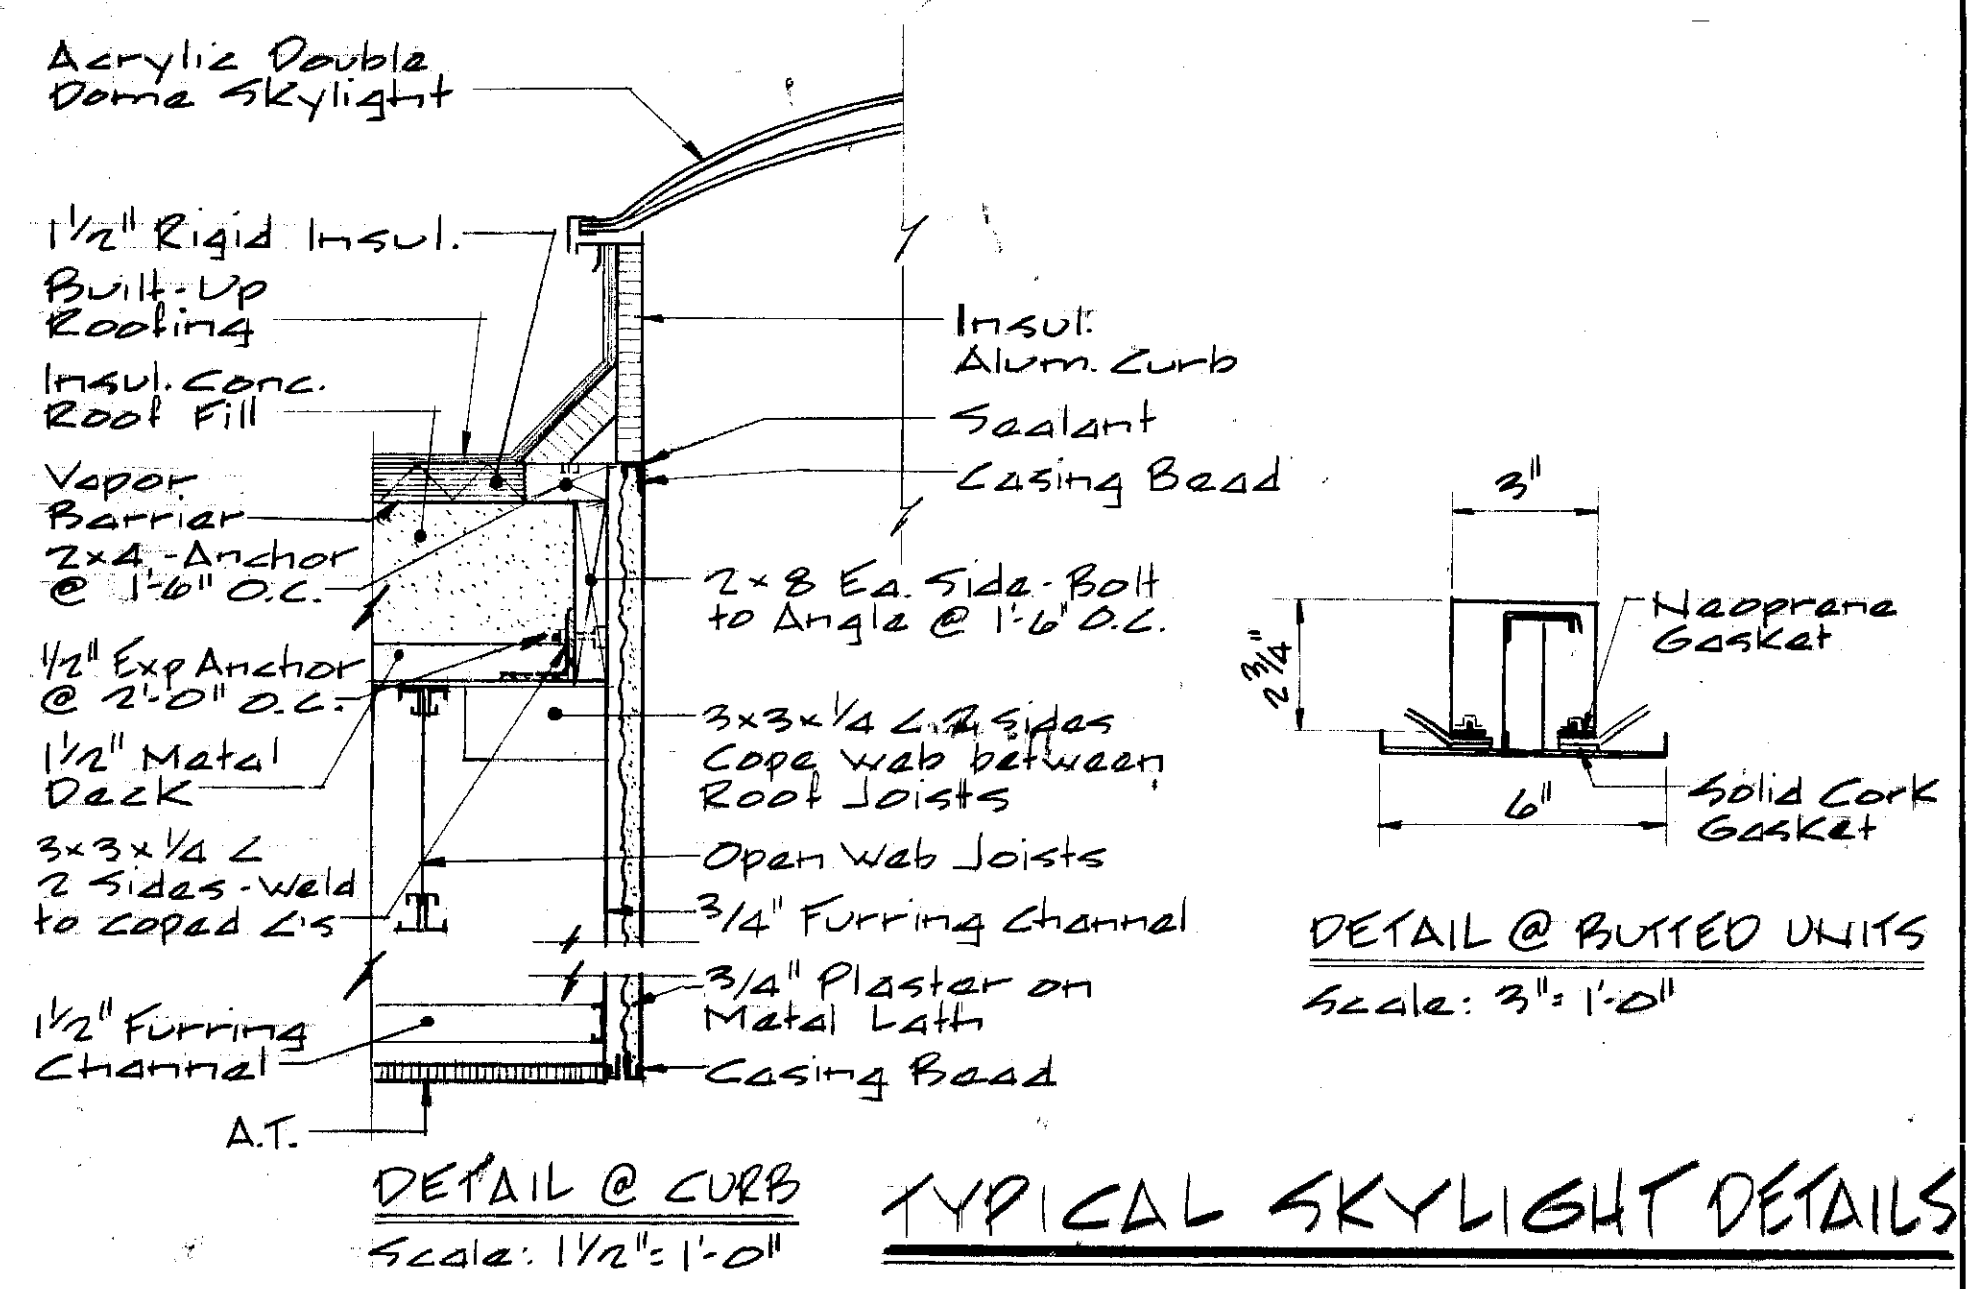 Acrylic Double
Dome Skylight
1 1/2" Rigid Insul.
Built-Up
Roofing
Insul. Conc.
Roof Fill
Vapor
Barrier
2x4 - Anchor
@ 1'-6" O.C.
1/2" Exp Anchor
@ 2'-0" O.C.
1 1/2" Metal
Deck
3x3x1/4 ∠
2 Sides - Weld
to coped ∠'s
1 1/2" Furring
Channel
A.T.
Insul.
Alum. Curb
Sealant
Casing Bead
2x8 Ea. Side - Bolt
to Angle @ 1'-6" O.C.
3x3x1/4 ∠ 2 Sides
Cope web between
Roof Joists
Open Web Joists
3/4" Furring Channel
3/4" Plaster on
Metal Lath
Casing Bead
DETAIL @ CURB
Scale: 1 1/2" = 1'-0"
3"
2 3/4"
Neoprene
Gasket
6"
Solid Cork
Gasket
DETAIL @ BUTTED UNITS
Scale: 3" = 1'-0"
TYPICAL SKYLIGHT DETAILS